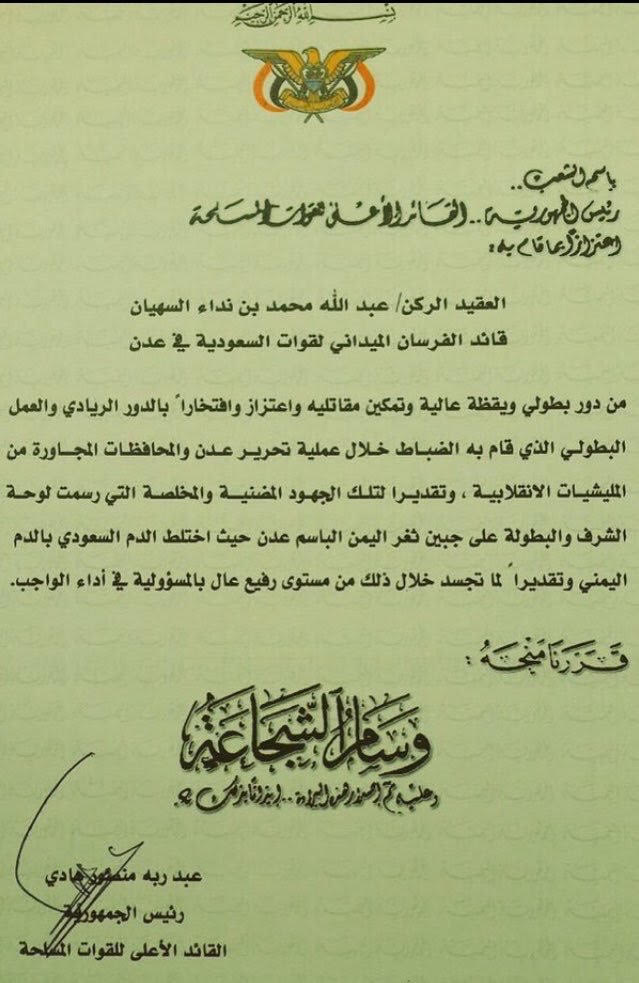 بسم الله الرحمن الرحيم
باسم الشعب ..
رئيس الجمهورية .. القائد الأعلى للقوات المسلحة
اعتزازاً بما قام به :
العقيد الركن/ عبد الله محمد بن نداء السهيان
قائد الفرسان الميداني لقوات السعودية في عدن
من دور بطولي ويقظة عالية وتمكين مقاتليه واعتزاز وافتخاراً بالدور الريادي والعمل
البطولي الذي قام به الضباط خلال عملية تحرير عدن والمحافظات المجاورة من
المليشيات الانقلابية ، وتقديرا لتلك الجهود المضنية والمخلصة التي رسمت لوحة
الشرف والبطولة على جبين ثغر اليمن الباسم عدن حيث اختلط الدم السعودي بالدم
اليمني وتقديراً لما تجسد خلال ذلك من مستوى رفيع عال بالمسؤولية في أداء الواجب.
قَرَّرنَا مَنْحَهُ :
وِسَامُ الشَّجَاعَة
وعليه تم إصدار هذه البراءة .. إيذاناً بذلك
عبد ربه منصور هادي
رئيس الجمهورية
القائد الأعلى للقوات المسلحة